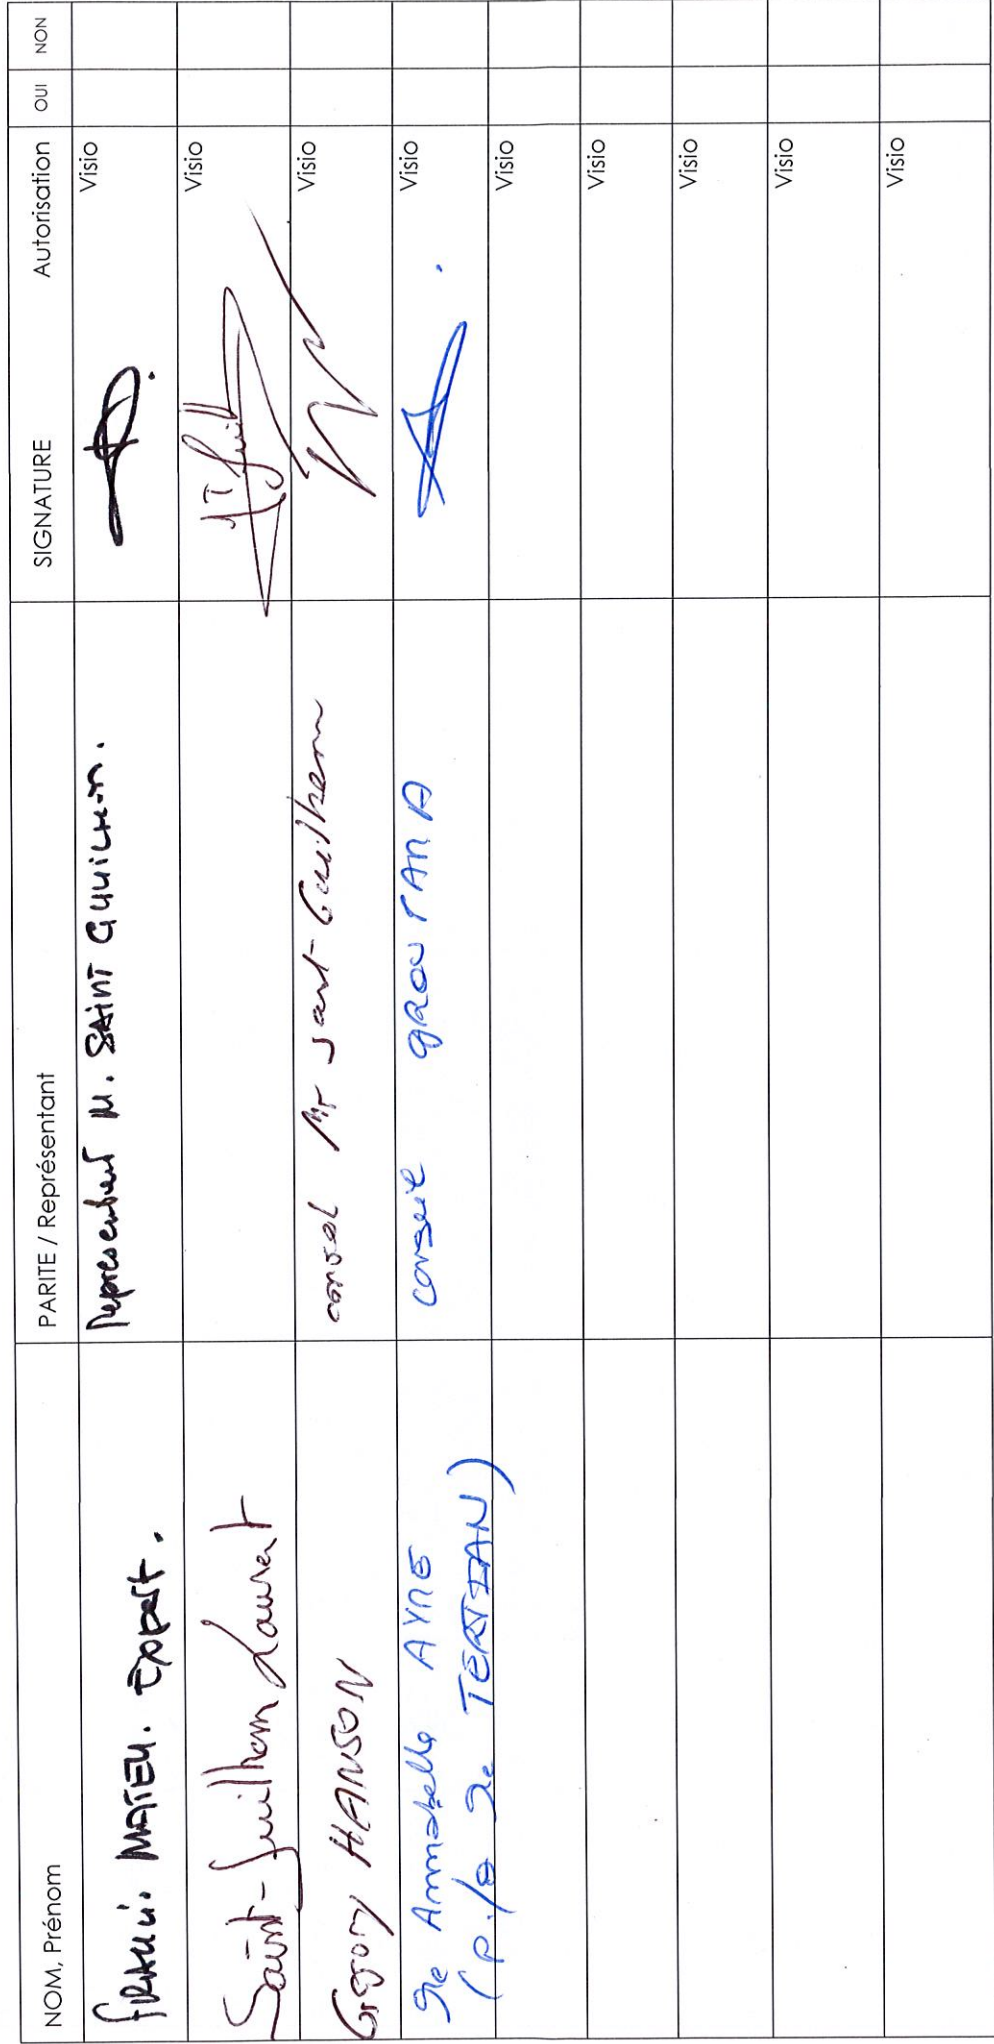 NOM, Prénom PARITE / Représentant SIGNATURE Autorisation OUI NON
MATEU. Expert. Représentant M. SAINT GUILHEM. Visio
Saint-Guilhem Laurent Visio
Gregory HANSON conseil Mr Saint-Guilhem Visio
Me Annabelle AYNE conseil Visio
(p/o Me TERTIAN) Visio
Visio
Visio
Visio
Visio